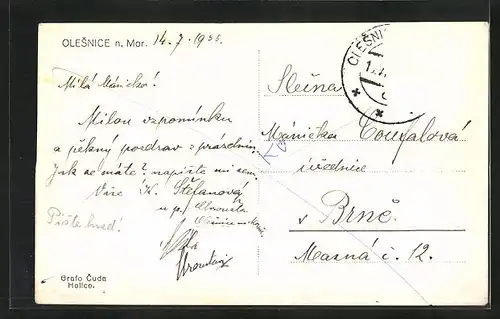 OLEŠNICE n. Mor. 14. 7. 1935.
Milá Máničko!
Milou vzpomínku
a pěkný pozdrav z prázdnin.
Jak se máte? napište mi sem.
Vaše K. Štefanová
u p.
Pište hned!
Grafo Čuda
Holice.
OLEŠNI
Slečna
Mánička Coufalová
úřednice
v Brně.
Masná č. 12.